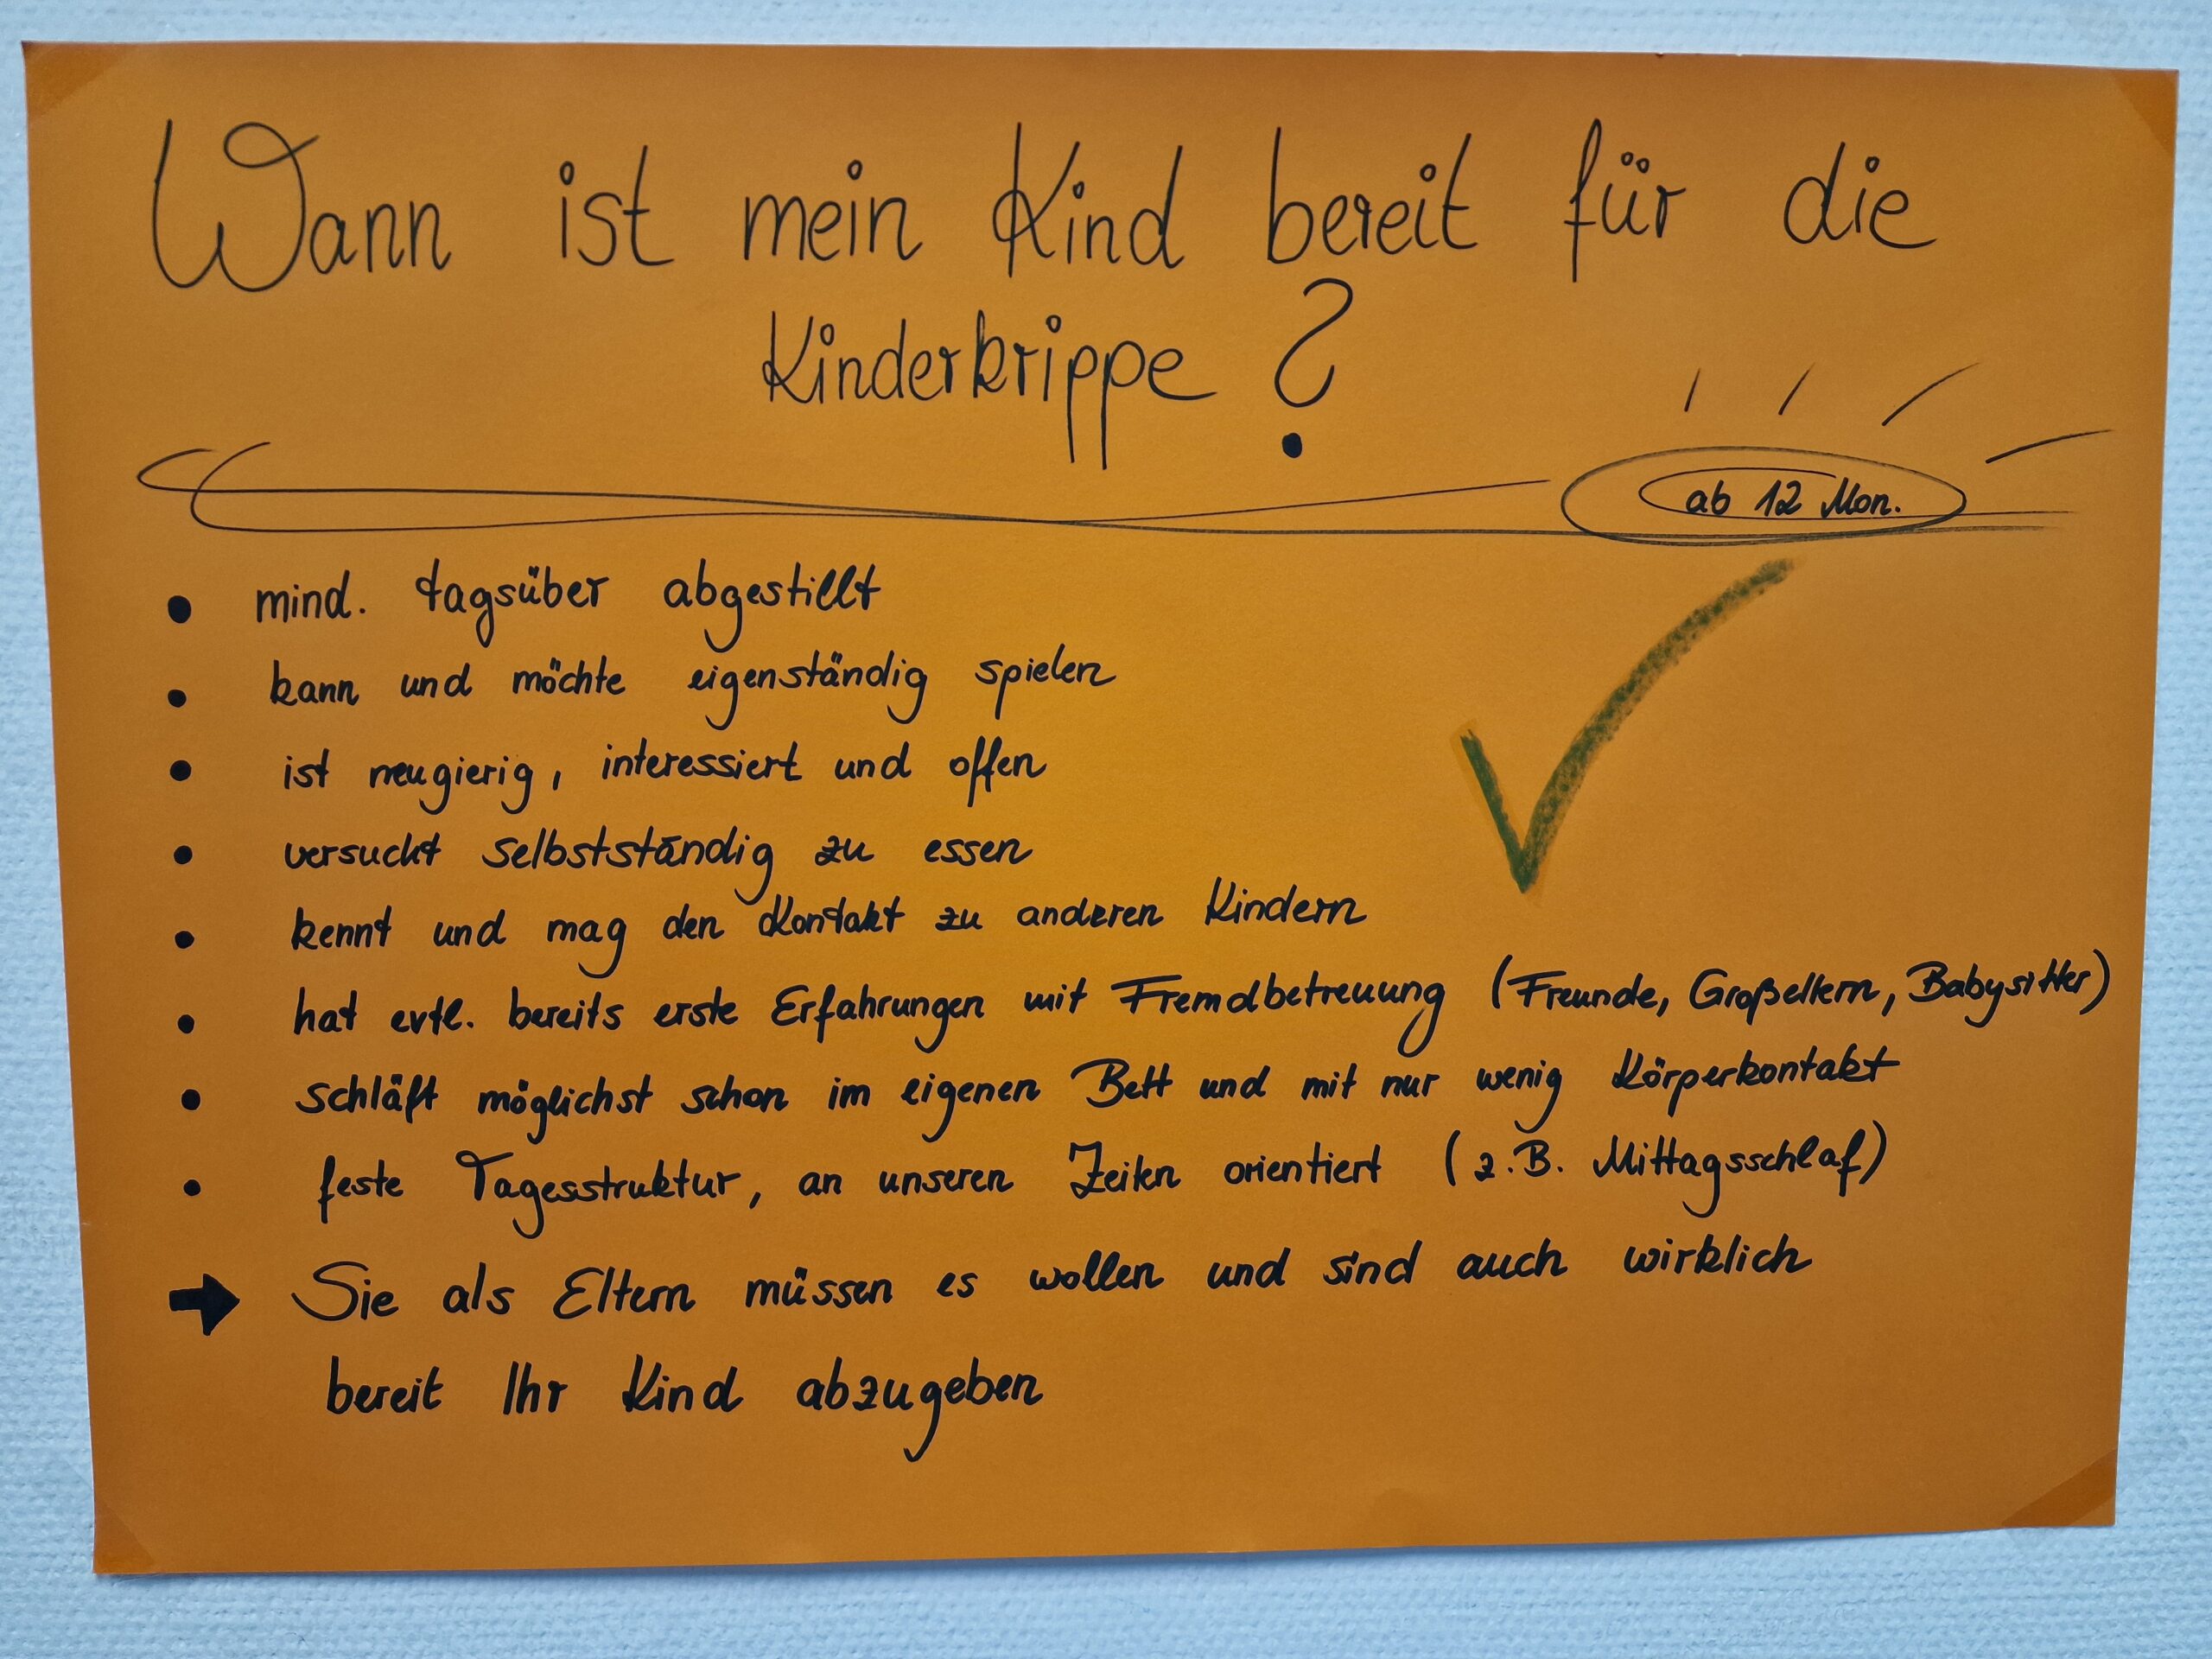 Wann ist mein Kind bereit für die
Kinderkrippe?
ab 12 Mon.
• mind. tagsüber abgestillt
• kann und möchte eigenständig spielen
• ist neugierig, interessiert und offen
• versucht selbstständig zu essen
• kennt und mag den Kontakt zu anderen Kindern
• hat evtl. bereits erste Erfahrungen mit Fremdbetreuung (Freunde, Großeltern, Babysitter)
• schläft möglichst schon im eigenen Bett und mit nur wenig Körperkontakt
• feste Tagesstruktur, an unseren Zeiten orientiert (z.B. Mittagsschlaf)
➡ Sie als Eltern müssen es wollen und sind auch wirklich
bereit Ihr Kind abzugeben